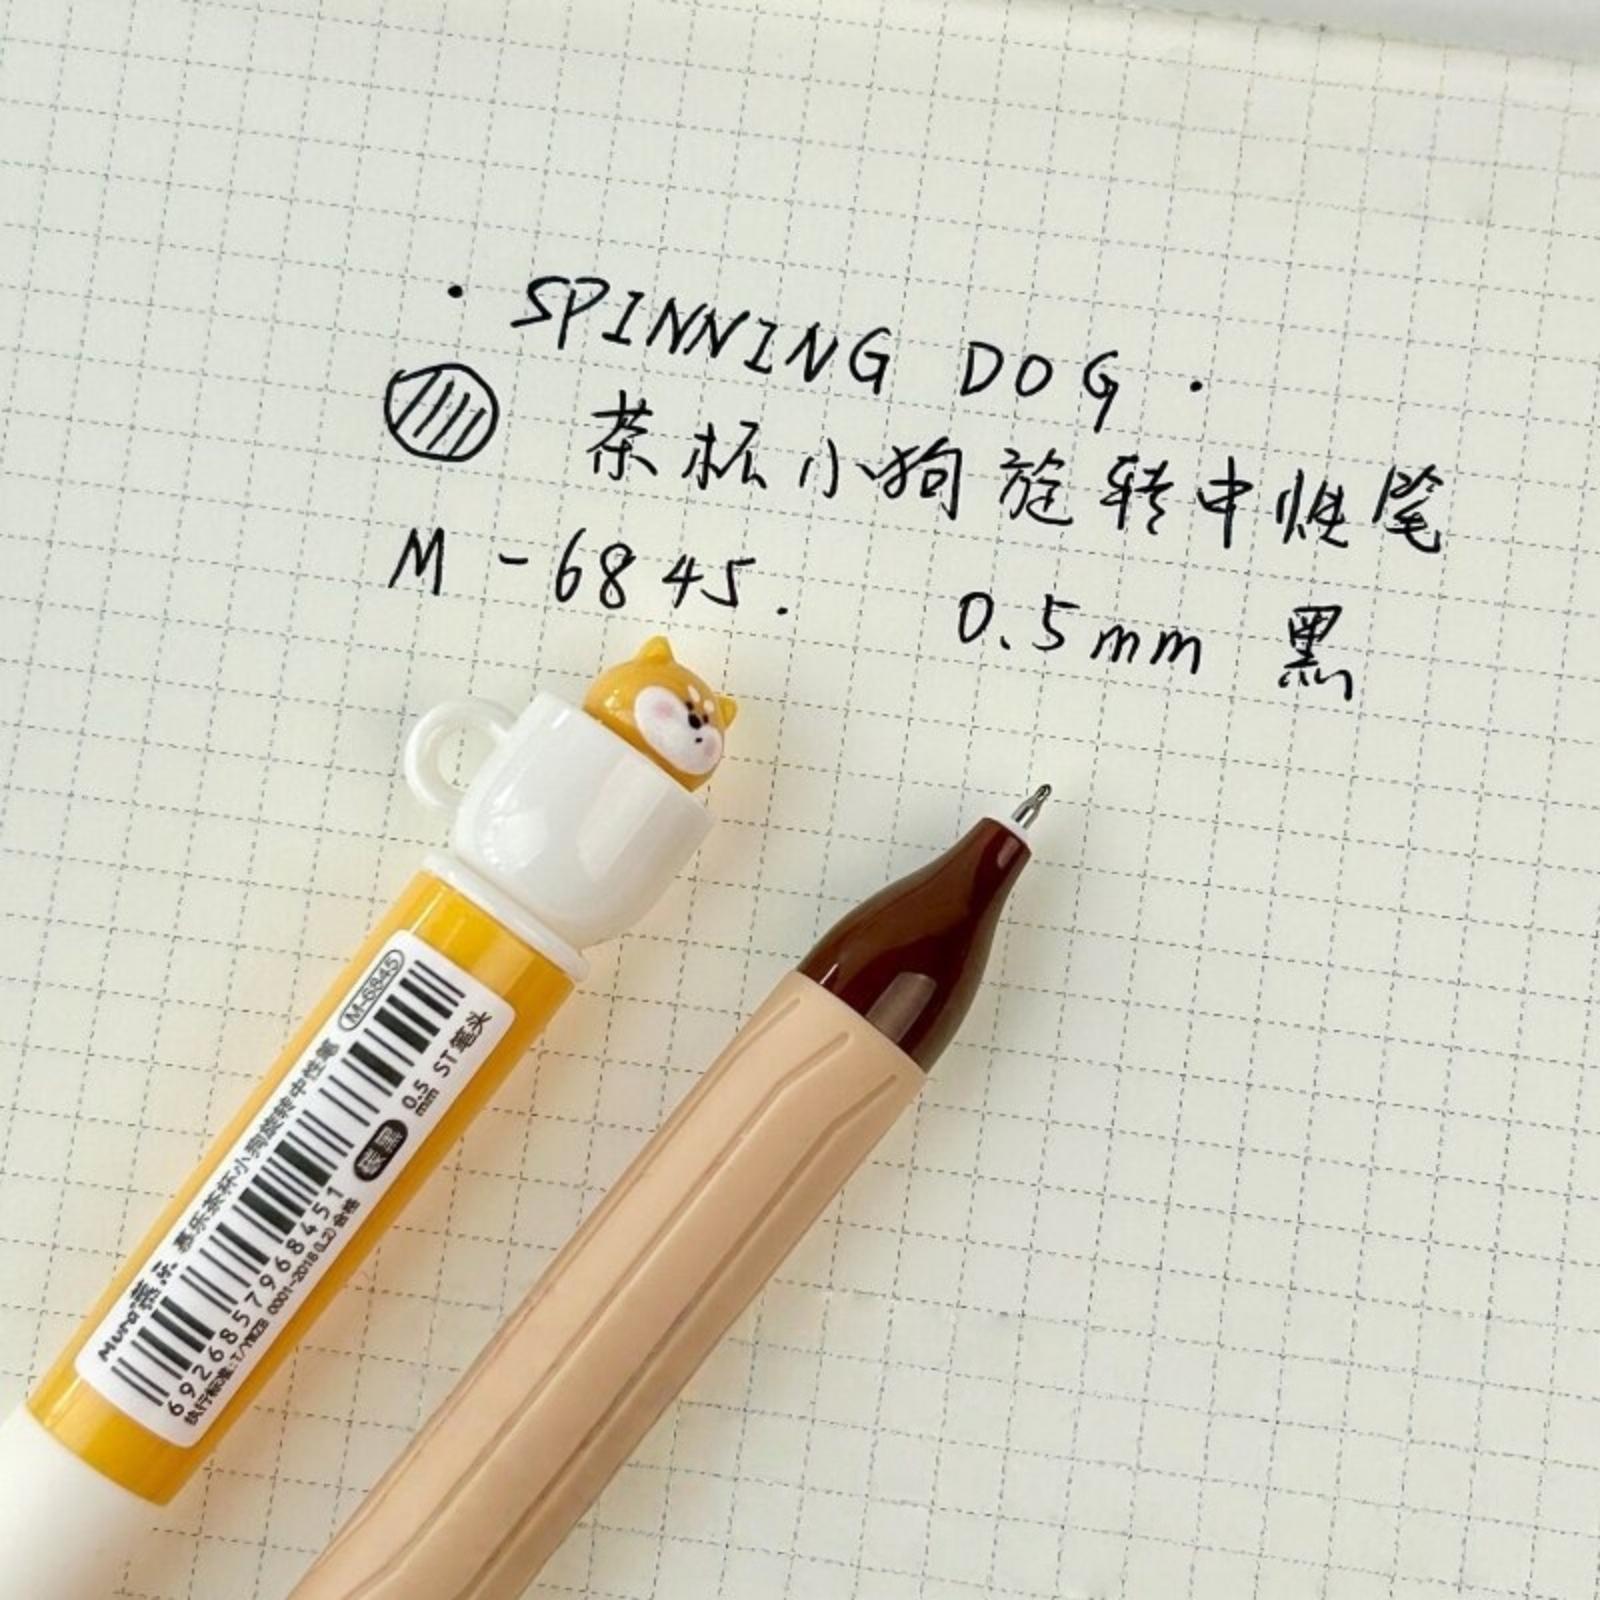 · SPINNING DOG ·
茶杯小狗旋转中性笔
M-6845. 0.5mm 黑
Mura慕乐 慕乐茶杯小狗旋转中性笔 M-6845
6926857968451 碳黑 0.5mm ST笔头
执行标准:T/YWZB 0001-2018(L2) 合格